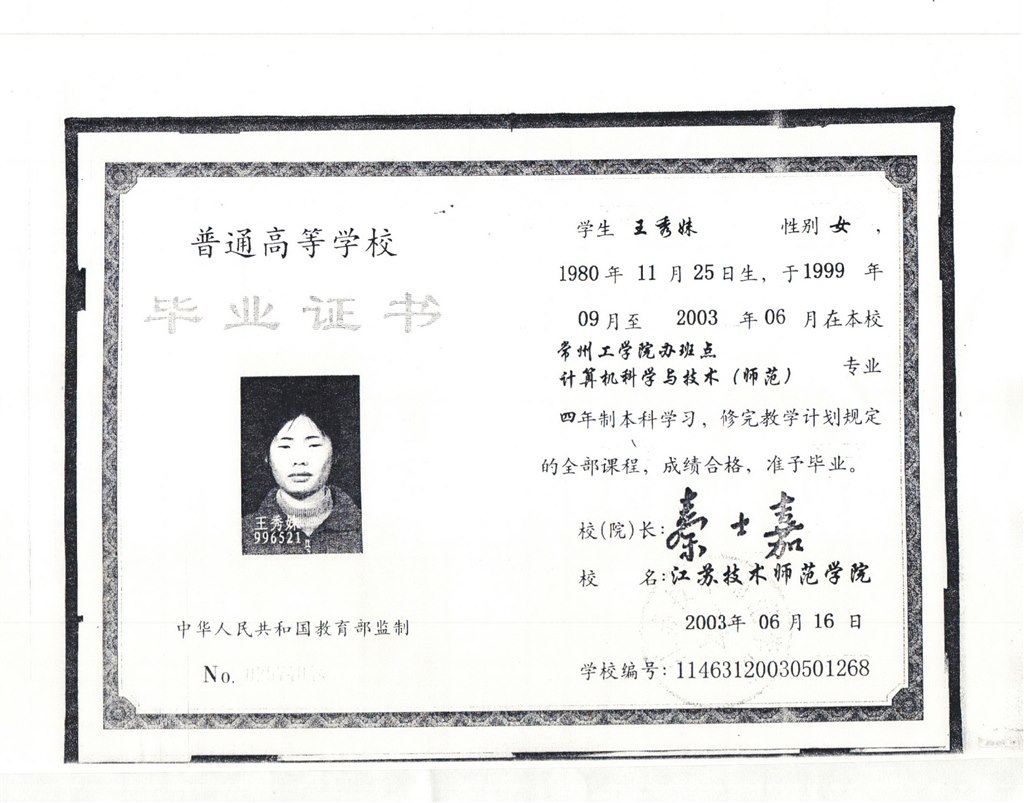 普通高等学校
毕业证书
王秀妹
996521
中华人民共和国教育部监制
No.
学生 王秀妹 性别 女，
1980 年 11 月 25 日生，于1999 年
09 月至 2003 年 06 月在本校
常州工学院办班点
计算机科学与技术（师范） 专业
四年制本科学习，修完教学计划规定
的全部课程，成绩合格，准予毕业。
校(院)长：秦士嘉
校 名：江苏技术师范学院
2003年 06 月 16 日
学校编号：114631200305012​68